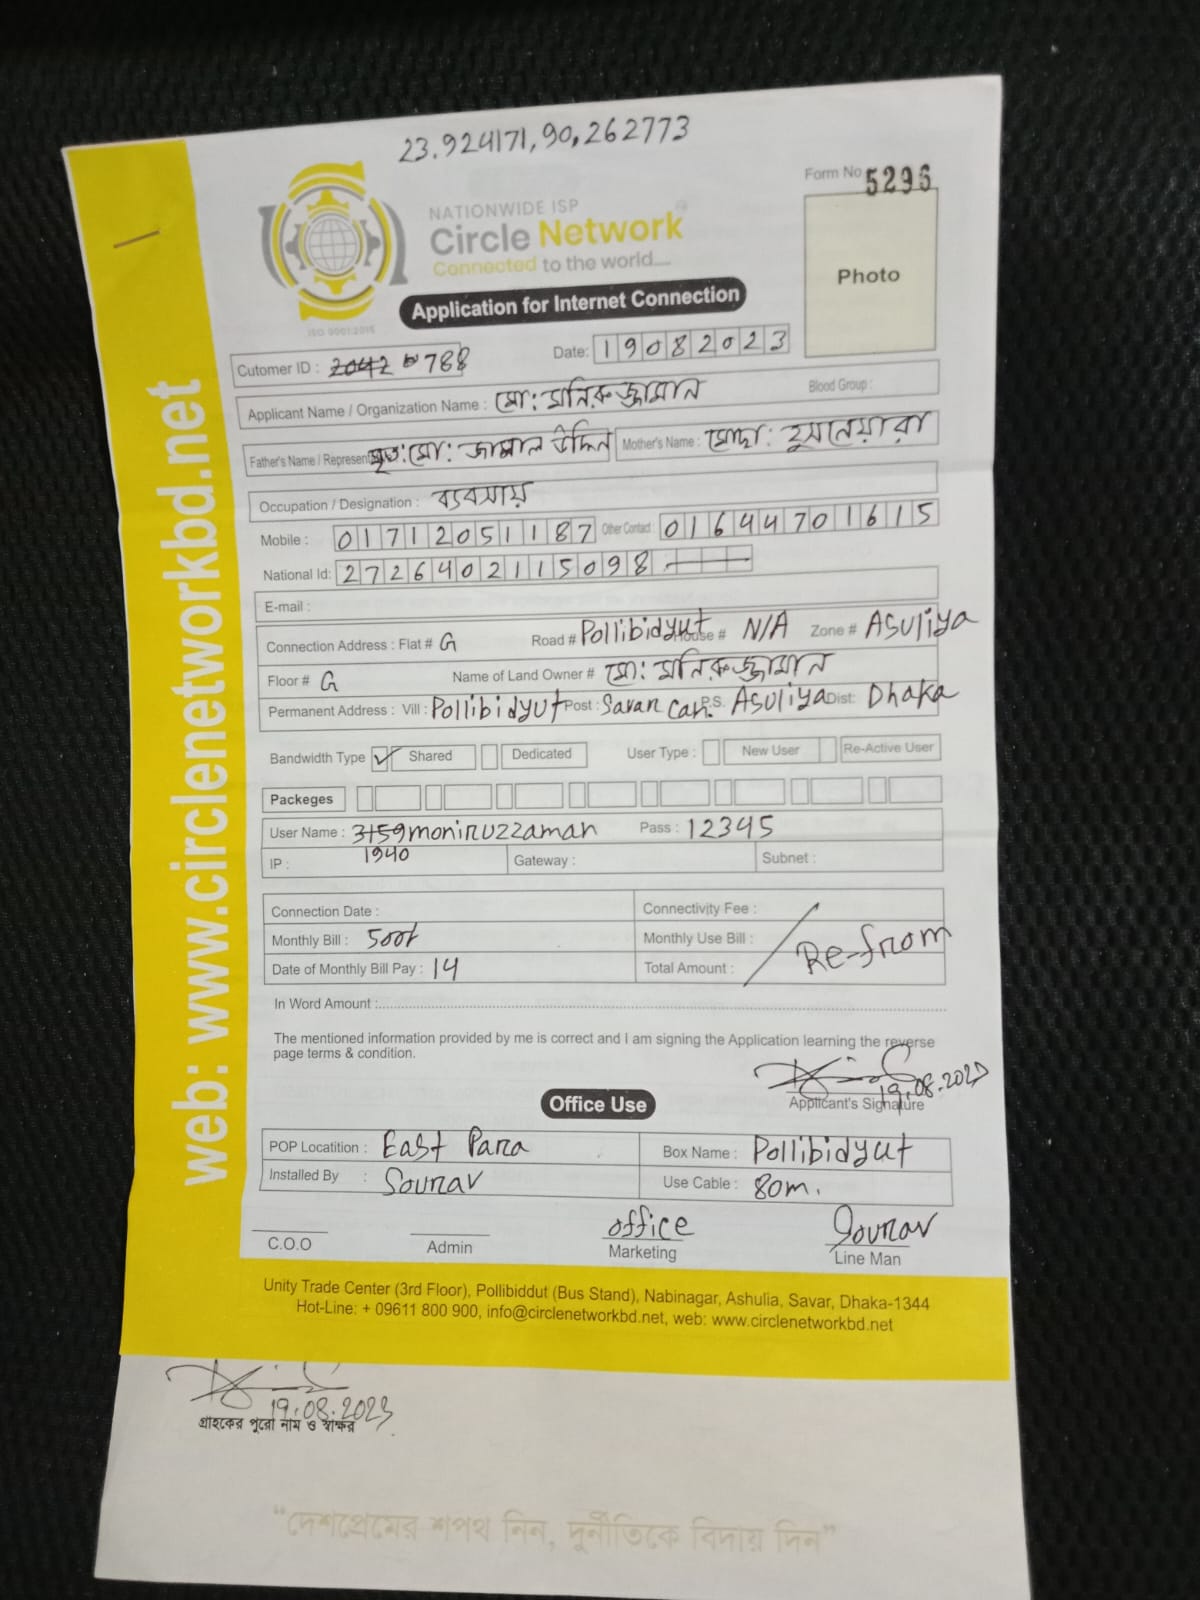 23.924171,90.262773
Form No 5296
NATIONWIDE ISP
Circle Network
Connected to the world....
ISO 9001:2015
Photo
Application for Internet Connection
Cutomer ID : 2042 788 Date: 19082023
Applicant Name / Organization Name : মো: মনিরুজ্জামান Blood Group :
Father's Name / Represent মৃত: মো: জামাল উদ্দিন Mother's Name : মোছা: হুসনেয়ারা
Occupation / Designation : ব্যবসায়
Mobile : 01712051187 Other Contact : 01644701615
National Id: 2726402115098
E-mail :
Connection Address : Flat # G Road # Pollibidyut House # N/A Zone # Asuliya
Floor # G Name of Land Owner # মো: মনিরুজ্জামান
Permanent Address : Vill : Pollibidyut Post : Savar Can. P.S. Asuliya Dist: Dhaka
Bandwidth Type ✓ Shared Dedicated User Type : New User Re-Active User
Packeges
User Name : 3159moniruzzaman Pass : 12345
1940
IP : Gateway : Subnet :
Connection Date : Connectivity Fee :
Monthly Bill : 500৳ Monthly Use Bill :
Re-from
Date of Monthly Bill Pay : 14 Total Amount :
In Word Amount :
The mentioned information provided by me is correct and I am signing the Application learning the reverse
page terms & condition.
19.08.2023
Applicant's Signature
Office Use
POP Locatition : East Para Box Name : Pollibidyut
Installed By : Sourav Use Cable : 80m.
office Sourav
C.O.O Admin Marketing Line Man
Unity Trade Center (3rd Floor), Pollibiddut (Bus Stand), Nabinagar, Ashulia, Savar, Dhaka-1344
Hot-Line: + 09611 800 900, info@circlenetworkbd.net, web: www.circlenetworkbd.net
web: www.circlenetworkbd.net
19.08.2023
গ্রাহকের পুরো নাম ও স্বাক্ষর
"দেশপ্রেমের শপথ নিন, দুর্নীতিকে বিদায় দিন"